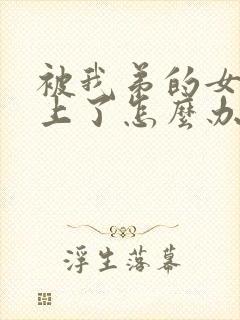 被我弟的女
上了怎麼办
浮生落幕